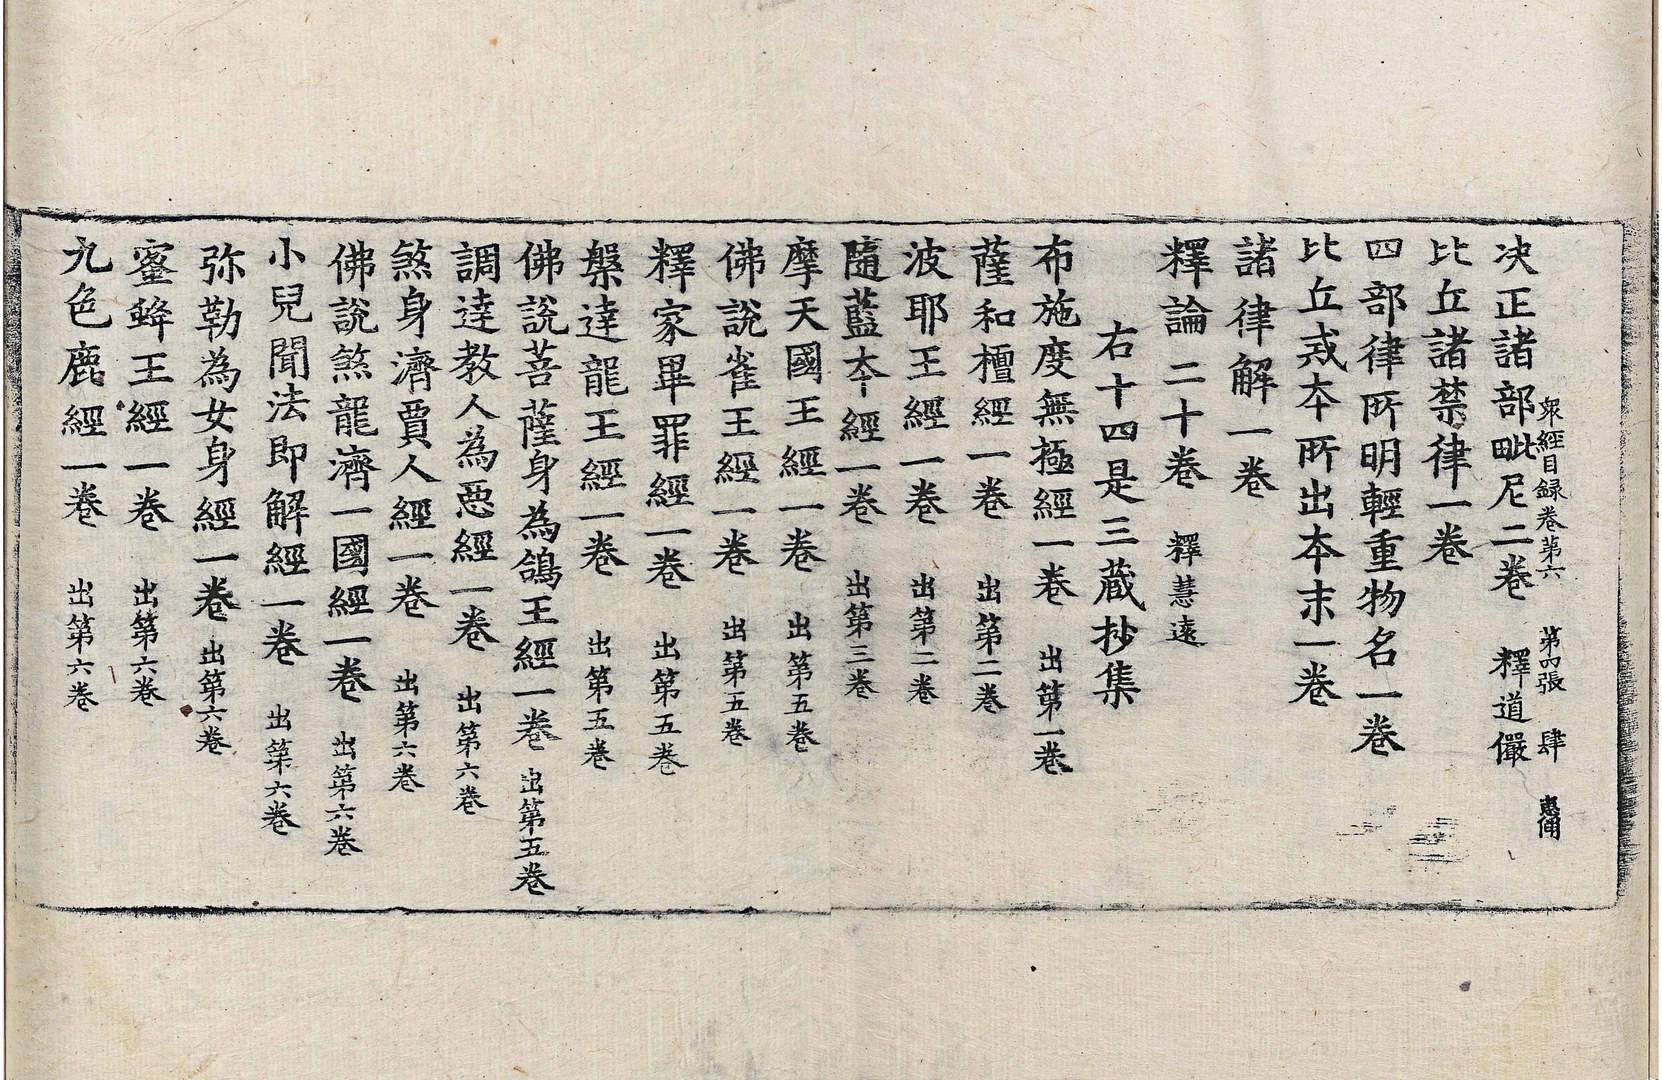 衆經目録卷第六 第四張 肆 惠甫
决正諸部毗尼二卷 釋道儼
比丘諸禁律一卷
四部律所明輕重物名一卷
比丘戒本所出本末一卷
諸律解一卷
釋論二十卷 釋慧遠
右十四是三藏抄集
布施度無極經一卷 出第一卷
薩和檀經一卷 出第二卷
波耶王經一卷 出第二卷
隨藍本經一卷 出第三卷
摩天國王經一卷 出第五卷
佛說雀王經一卷 出第五卷
釋家畢罪經一卷 出第五卷
槃達龍王經一卷 出第五卷
佛說菩薩身為鴿王經一卷 出第五卷
調達教人為惡經一卷 出第六卷
煞身濟賈人經一卷 出第六卷
佛說煞龍濟一國經一卷 出第六卷
小兒聞法即解經一卷 出第六卷
弥勒為女身經一卷 出第六卷
蜜蜂王經一卷 出第六卷
九色鹿經一卷 出第六卷